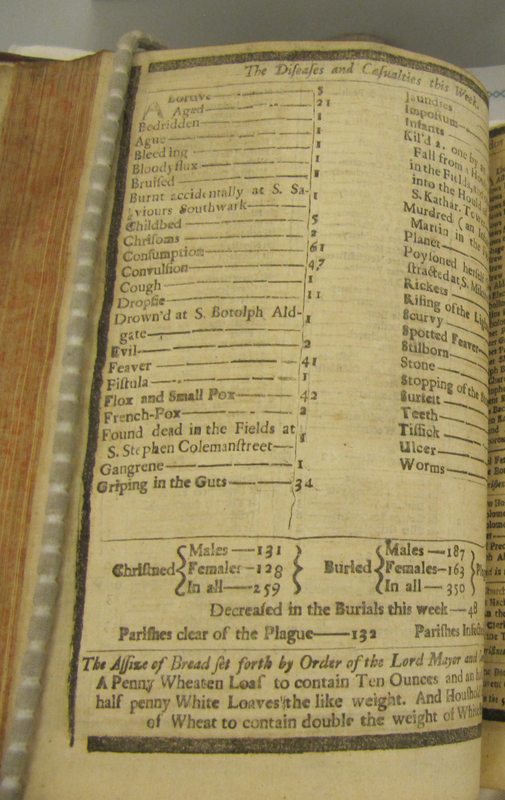 The Diseases and Casualties this Week.
Abortive 5
Aged 21
Bedridden 1
Ague 1
Bleeding 1
Bloody flux 1
Bruised
Burnt accidentally at S. Sa- 1
viours Southwark
Childbed 5
Chrisoms 2
Consumption 61
Convulsion 47
Cough 1
Dropsie 11
Drown'd at S. Botolph Ald- 1
gate
Evil 2
Feaver 41
Fistula 1
Flox and Small Pox 42
French-Pox 2
Found dead in the Fields at 1
S. Stephen Colemanstreet
Gangrene 1
Griping in the Guts 34
Jaundies
Impostum
Infants
Kil'd 2, one by
Fall from a
in the Fields,
into the Hould
S. Kathar. Tower
Murdred
Martin in the
Planet
Poysoned herself
stracted at S.
Rickets
Rising of the Lights
Scurvy
Spotted Feaver
Stilborn
Stone
Stopping of the
Surfeit
Teeth
Tissick
Ulcer
Worms
Christned { Males 131 Females 128 In all 259 }
Buried { Males 187 Females 163 In all 350 }
Decreased in the Burials this week 48
Parishes clear of the Plague 132 Parishes Infe
The Assize of Bread set forth by Order of the Lord Mayor and
A Penny Wheaten Loaf to contain Ten Ounces and an
half penny White Loaves the like weight. And Houshold
of Wheat to contain double the weight of